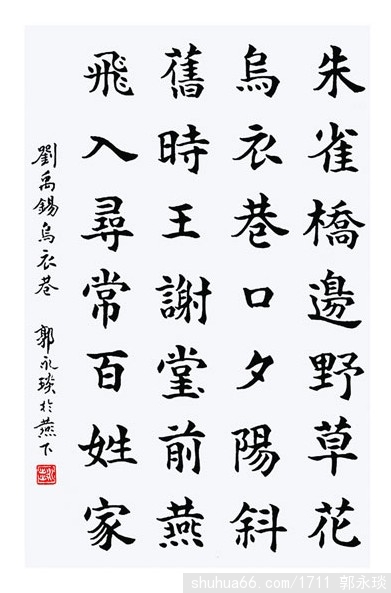 朱雀橋邊野草花
烏衣巷口夕陽斜
舊時王謝堂前燕
飛入尋常百姓家
劉禹錫烏衣巷 郭永琰於燕下
shuhua66.com/1711 郭永琰